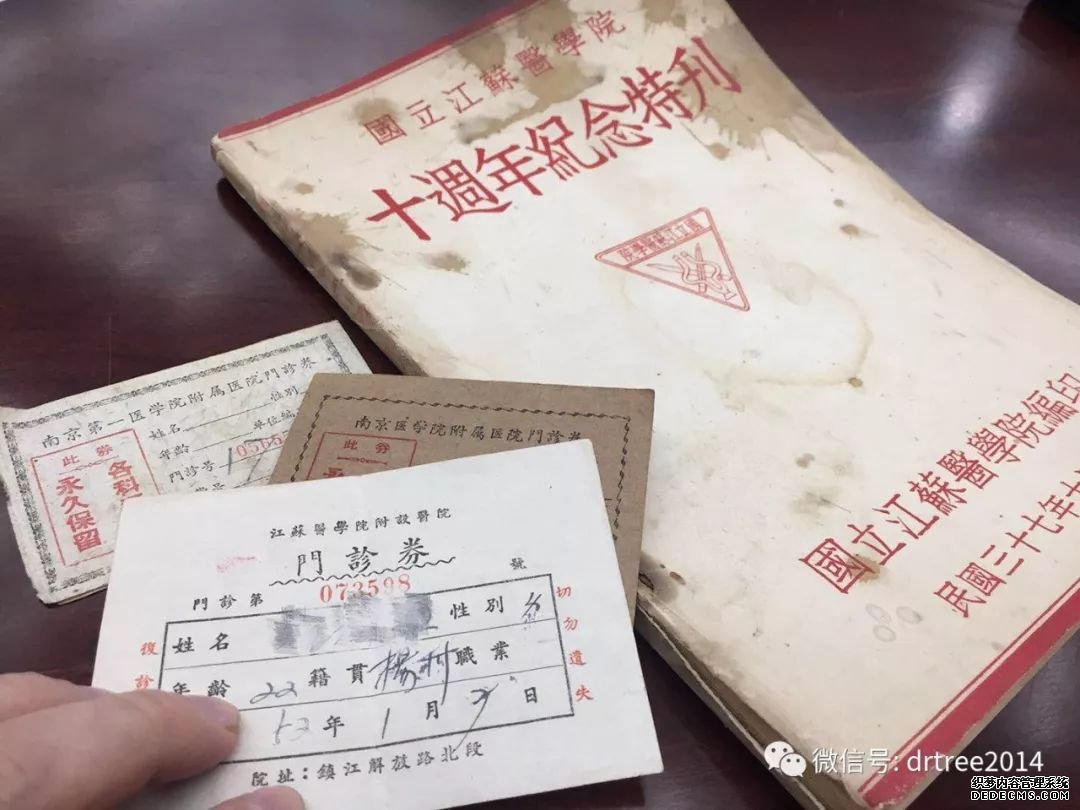 國立江蘇醫學院
十週年紀念特刊
國立江蘇醫學院
國立江蘇醫學院編印
民國三十七年十
南京第一医学院附属医院門診券
姓名 性別
年齡 单位编
門診号
此券
各科
永久保留
南京医学院附属医院門診券
此券
江蘇醫學院附設醫院
門診券
門診第 073598 號
姓名 性別
年齡 22 籍貫 楊村 職業
52年 1月 日
復診
切勿遺失
院址：鎮江解放路北段
微信号: drtree2014
织梦内容管理系统
DEDECMS.COM